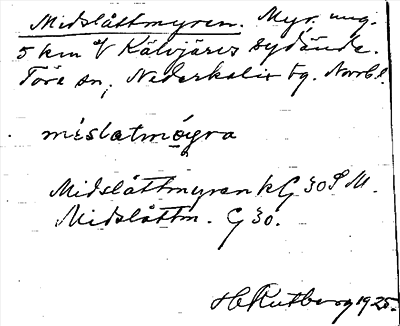 Midslåttmyren. Myr, ung.
5 km V Kälvjärvs sydände.
Töre sn, Nederkalix tg. Norrb. l.
méslatmøgra
Midslåttmyren k G 30 S M.
Midslåttm. G 30.
H Rutberg 1925.